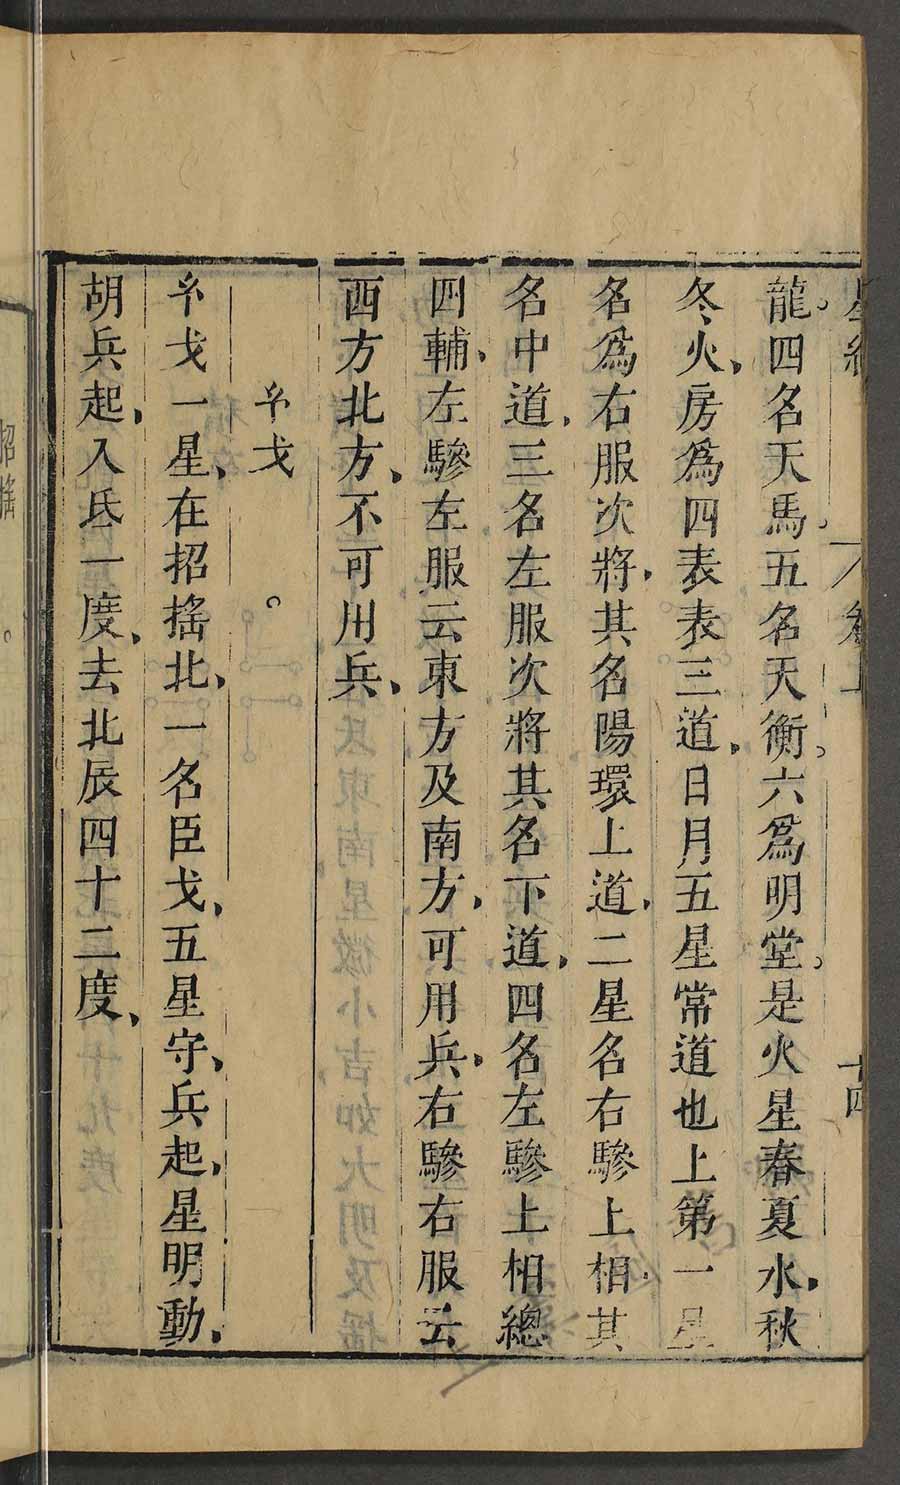 龍四名天馬五名天衡六爲明堂是火星春夏水秋
冬火房爲四表表三道日月五星常道也上第一星
名爲右服次將其名陽環上道二星名右驂上相其
名中道三名左服次將其名下道四名左驂上相總
四輔左驂左服云東方及南方可用兵右驂右服云
西方北方不可用兵
㐧戈
㐧戈一星在招搖北一名臣戈五星守兵起星明動
胡兵起入氐一度去北辰四十二度
星經
卷上
十四
招搖